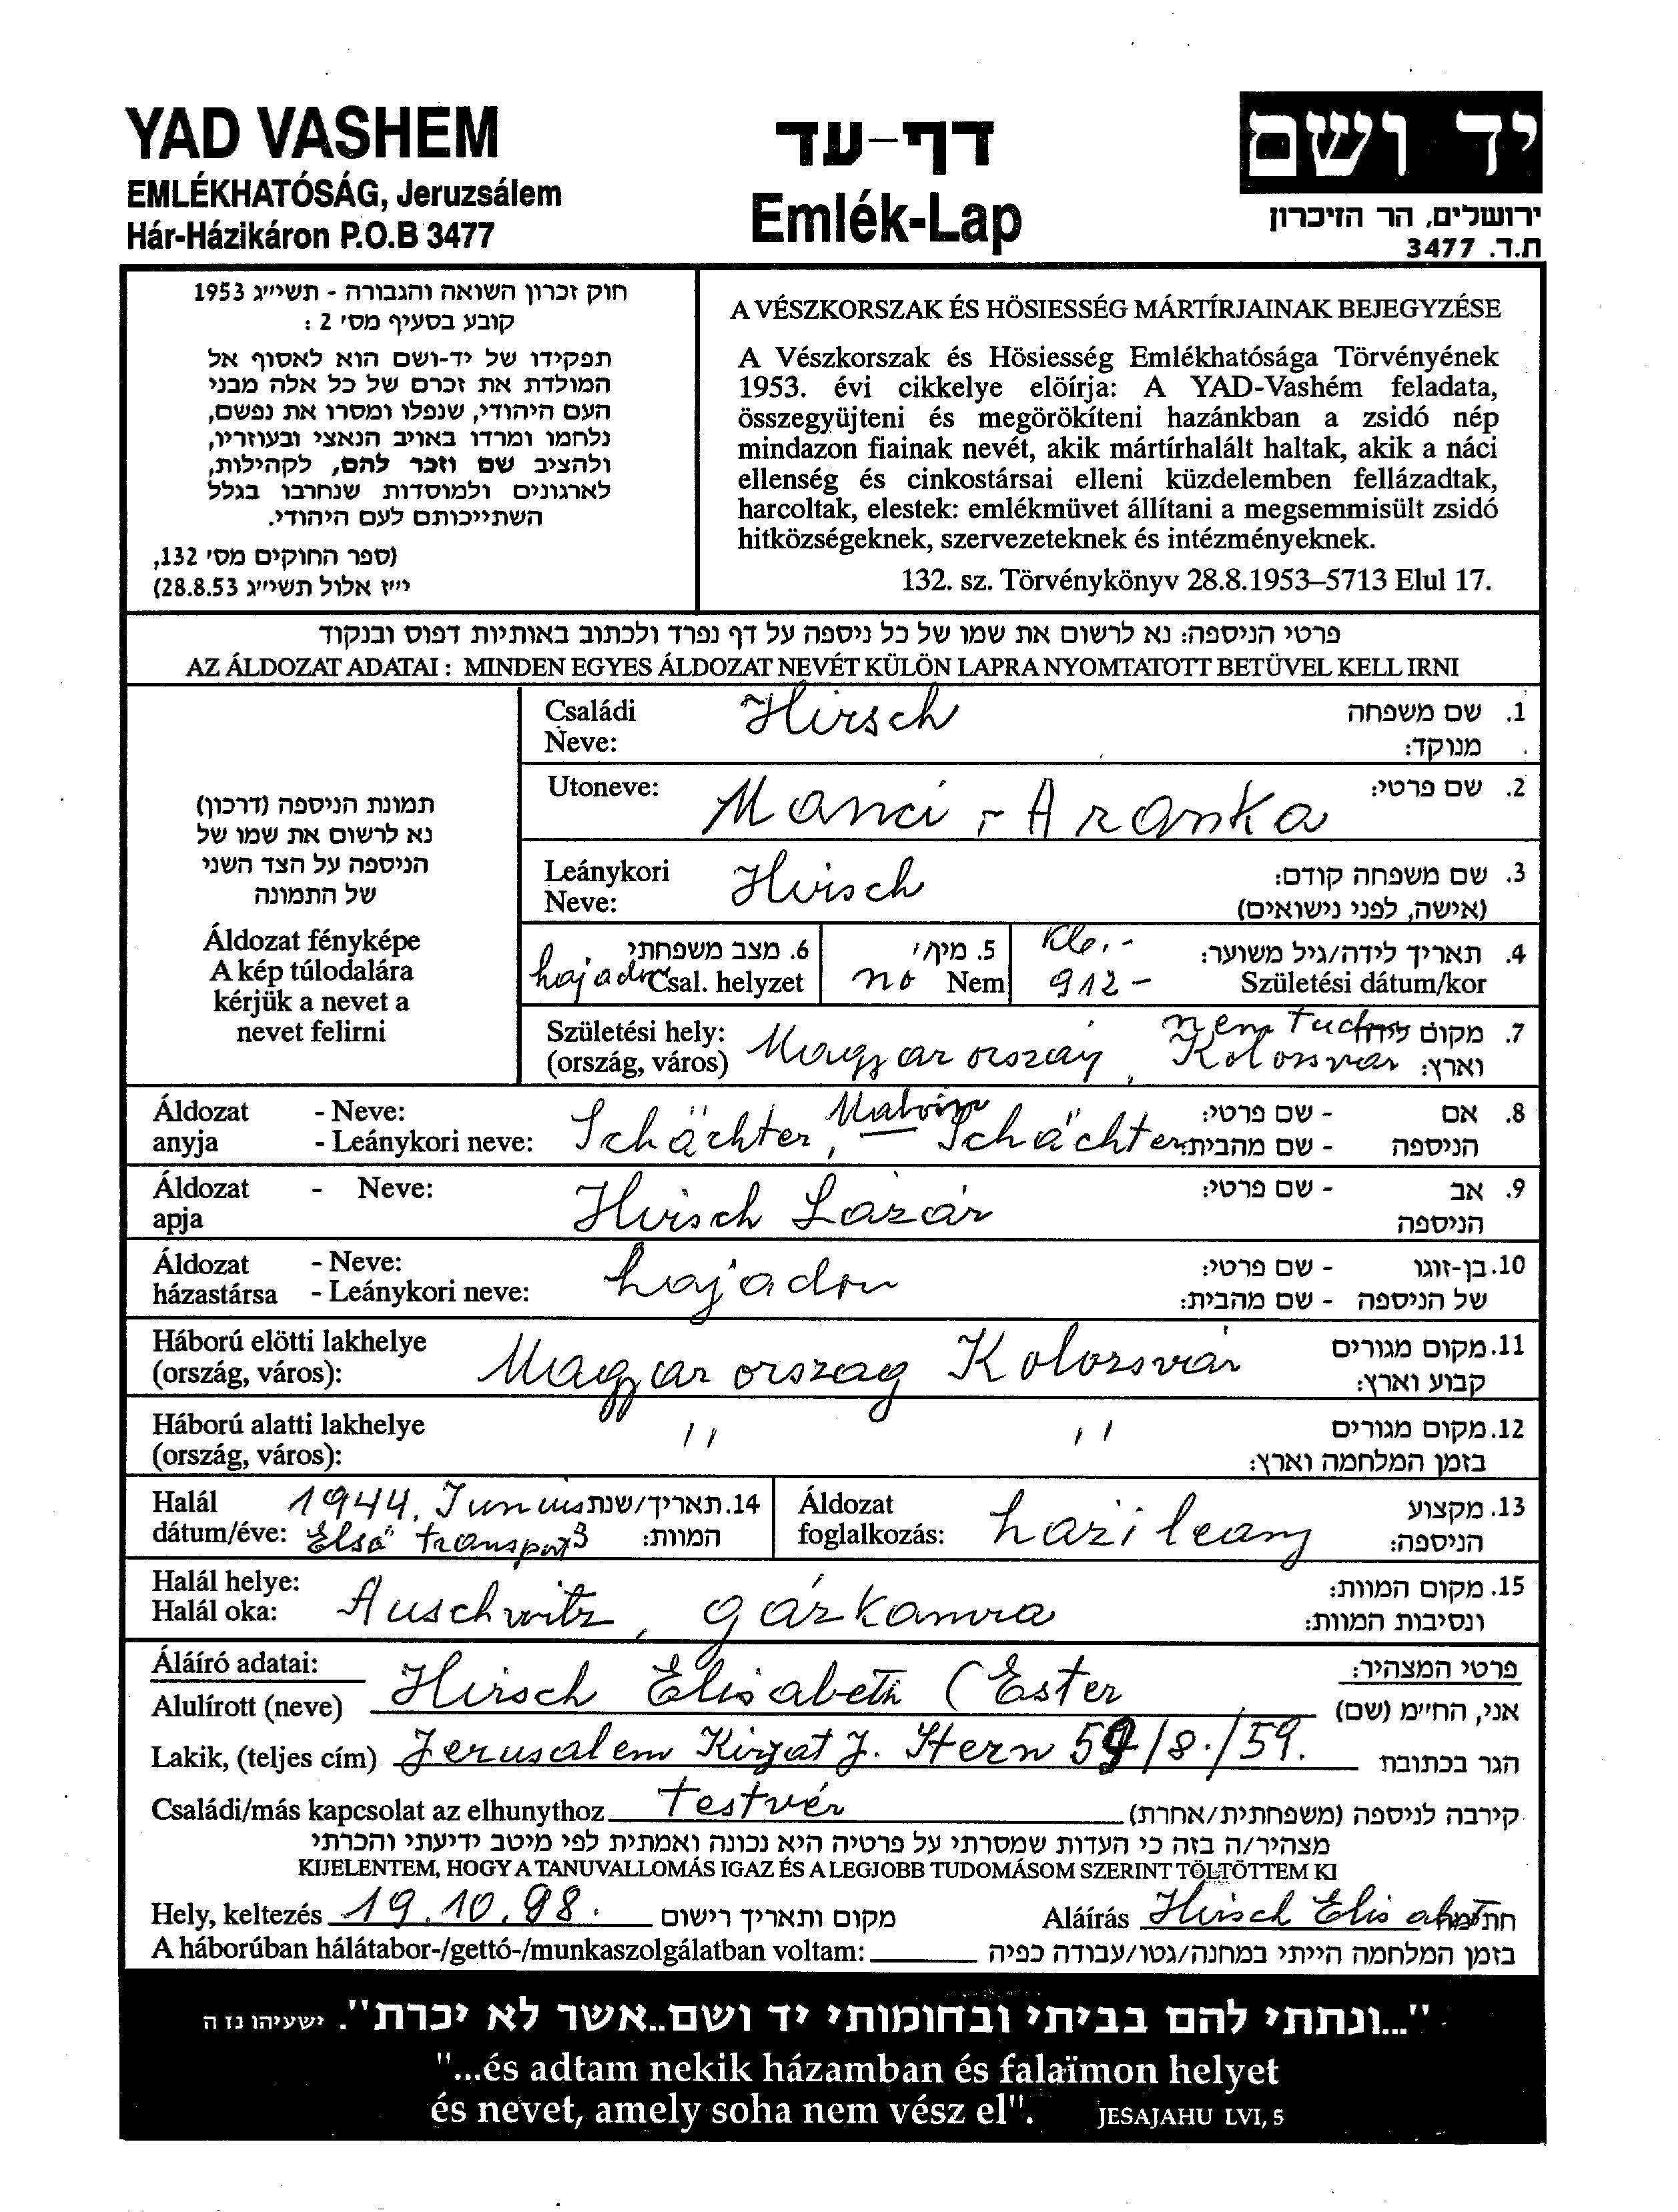 YAD VASHEM
EMLÉKHATÓSÁG, Jeruzsálem
Hár-Házikáron P.O.B 3477
דף-עד
Emlék-Lap
יד ושם
ירושלים, הר הזיכרון
ת.ד. 3477
חוק זכרון השואה והגבורה - תשי״ג 1953
קובע בסעיף מס׳ 2 :
תפקידו של יד-ושם הוא לאסוף אל
המולדת את זכרם של כל אלה מבני
העם היהודי, שנפלו ומסרו את נפשם,
נלחמו ומרדו באויב הנאצי ובעוזריו,
ולהציב שם וזכר להם, לקהילות,
לארגונים ולמוסדות שנחרבו בגלל
השתייכותם לעם היהודי.
(ספר החוקים מס׳ 132,
י״ז אלול תשי״ג 28.8.53)
A VÉSZKORSZAK ÉS HÖSIESSÉG MÁRTÍRJAINAK BEJEGYZÉSE
A Vészkorszak és Hösiesség Emlékhatósága Törvényének
1953. évi cikkelye elöírja: A YAD-Vashém feladata,
összegyüjteni és megörökíteni hazánkban a zsidó nép
mindazon fiainak nevét, akik mártírhalált haltak, akik a náci
ellenség és cinkostársai elleni küzdelemben fellázadtak,
harcoltak, elestek: emlékmüvet állítani a megsemmisült zsidó
hitközségeknek, szervezeteknek és intézményeknek.
132. sz. Törvénykönyv 28.8.1953–5713 Elul 17.
פרטי הניספה: נא לרשום את שמו של כל ניספה על דף נפרד ולכתוב באותיות דפוס ובנקוד
AZ ÁLDOZAT ADATAI : MINDEN EGYES ÁLDOZAT NEVÉT KÜLÖN LAPRA NYOMTATOTT BETÜVEL KELL IRNI
תמונת הניספה (דרכון)
נא לרשום את שמו של
הניספה על הצד השני
של התמונה
Áldozat fényképe
A kép túlodalára
kérjük a nevet a
nevet felirni
Családi Neve: Hirsch 1. שם משפחה מנוקד:
Utoneve: Manci - Aranka 2. שם פרטי:
Leánykori Neve: Hirsch 3. שם משפחה קודם: (אישה, לפני נישואים)
6. מצב משפחתי hajadon Csal. helyzet
5. מין/ nő Nem
912 - 4. תאריך לידה/גיל משוער: Születési dátum/kor
Születési hely: (ország, város) Magyarország, nem tudom Kolozsvár 7. מקום לידה וארץ:
Áldozat anyja - Neve: - Leánykori neve: Schächter, Malvin Schächter 8. אם הניספה - שם פרטי: - שם מהבית:
Áldozat apja - Neve: Hirsch Lázár 9. אב הניספה - שם פרטי:
Áldozat házastársa - Neve: - Leánykori neve: hajadon 10. בן-זוגו של הניספה - שם פרטי: - שם מהבית:
Háború elötti lakhelye (ország, város): Magyarorszag Kolozsvár 11. מקום מגורים קבוע וארץ:
Háború alatti lakhelye (ország, város): " " 12. מקום מגורים בזמן המלחמה וארץ:
Halál dátum/éve: 1944. Junius Első transport 14. תאריך/שנת המוות:
Áldozat foglalkozás: házi leany 13. מקצוע הניספה:
Halál helye: Halál oka: Auschwitz, gázkamra 15. מקום המוות: ונסיבות המוות:
Áláíró adatai: פרטי המצהיר:
Alulírott (neve) Hirsch Elisabeth (Ester אני, החי״מ (שם)
Lakik, (teljes cím) Jerusalem Kirjat J. Stern 59/8./59. הגר בכתובת
Családi/más kapcsolat az elhunythoz Testvér קירבה לניספה (משפחתית/אחרת)
מצהיר/ה בזה כי העדות שמסרתי על פרטיה היא נכונה ואמתית לפי מיטב ידיעתי והכרתי
KIJELENTEM, HOGY A TANUVALLOMÁS IGAZ ÉS A LEGJOBB TUDOMÁSOM SZERINT TÖLTÖTTEM KI
Hely, keltezés 19.10.98. מקום ותאריך רישום Aláírás Hirsch Elisabeth חתימה
A háborúban hálátabor-/gettó-/munkaszolgálatban voltam: בזמן המלחמה הייתי במחנה/גטו/עבודה כפיה
"...ונתתי להם בביתי ובחומותי יד ושם..אשר לא יכרת". ישעיהו נז ה
"...és adtam nekik házamban és falaïmon helyet
és nevet, amely soha nem vész el". JESAJAHU LVI, 5